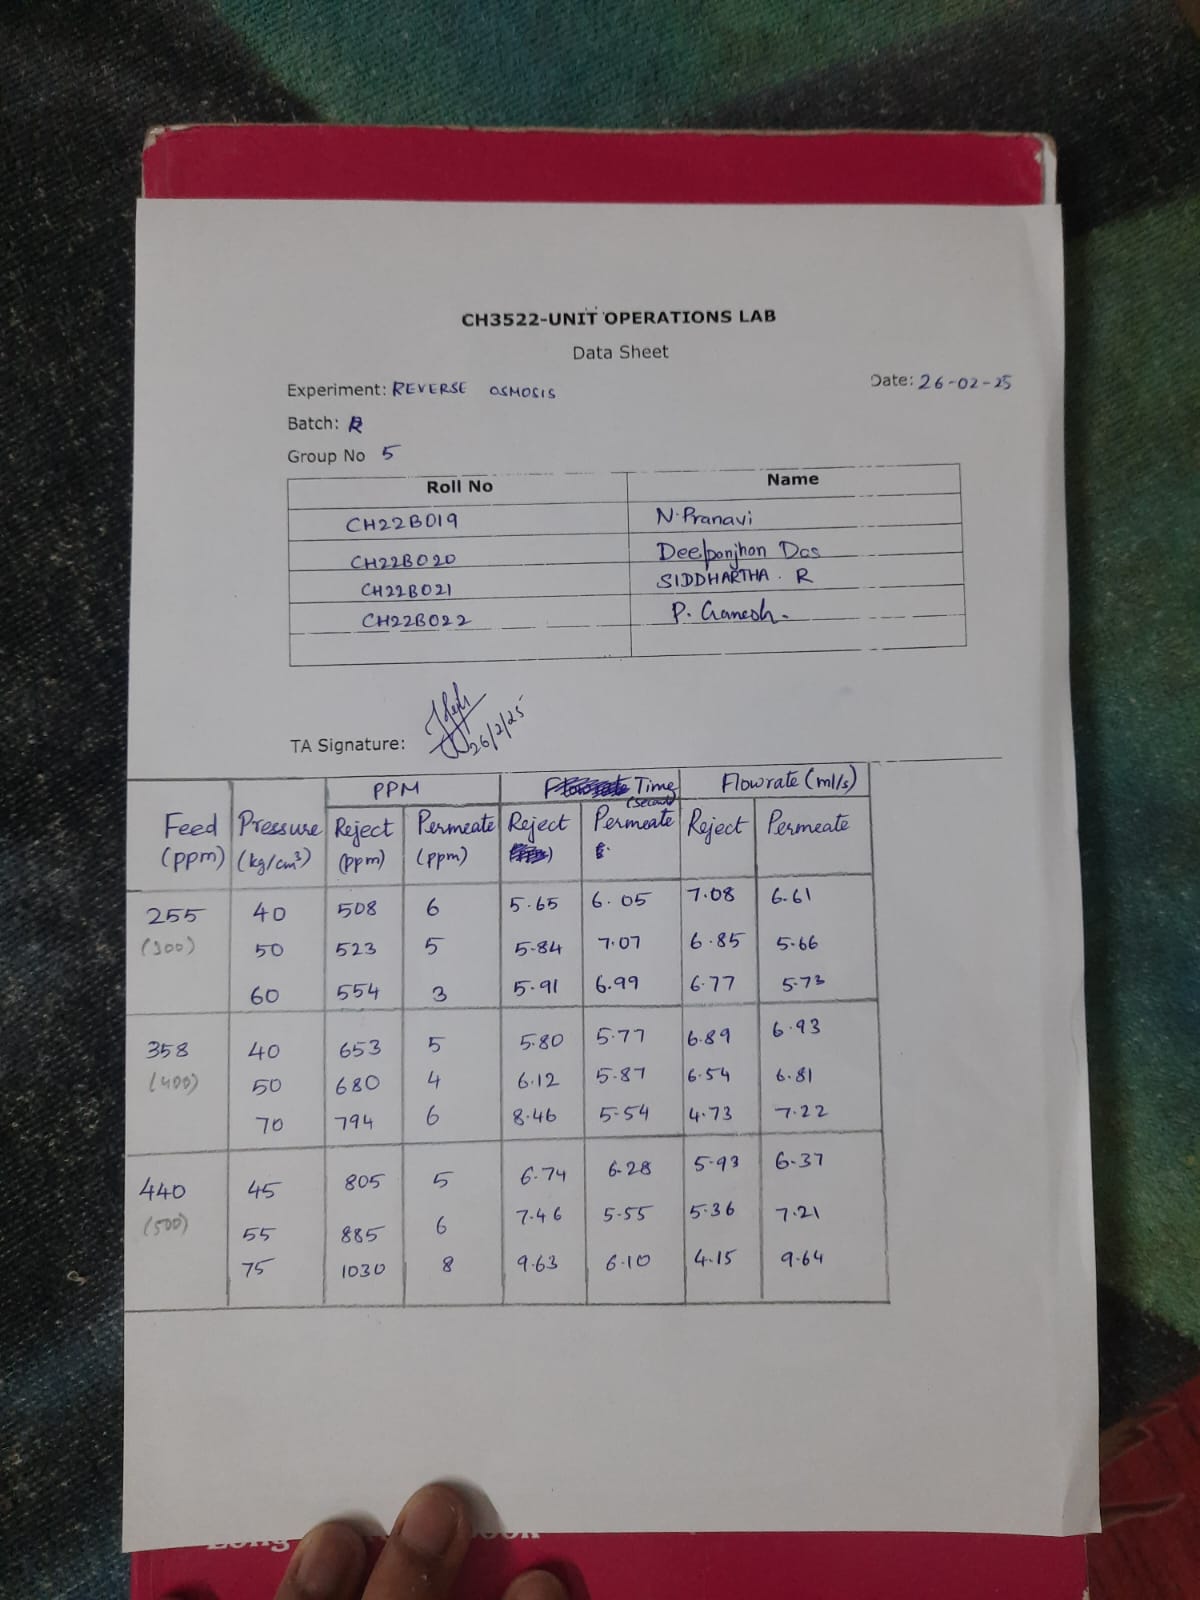 CH3522-UNIT OPERATIONS LAB
Data Sheet
Experiment: REVERSE OSMOSIS
Date: 26-02-25
Batch: R
Group No 5
Roll No Name
CH22B019 N. Pranavi
CH22B020 Deeponjhon Das
CH22B021 SIDDHARTHA . R
CH22B022 P. Ganesh.
TA Signature: 26/2/25
PPM Time (second) Flowrate (ml/s)
Feed (ppm) Pressure (kg/cm³) Reject (ppm) Permeate (ppm) Reject Permeate Reject Permeate
255 40 508 6 5.65 6.05 7.08 6.61
(300) 50 523 5 5.84 7.07 6.85 5.66
60 554 3 5.91 6.99 6.77 5.73
358 40 653 5 5.80 5.77 6.89 6.93
(400) 50 680 4 6.12 5.87 6.54 6.81
70 794 6 8.46 5.54 4.73 7.22
440 45 805 5 6.74 6.28 5.93 6.37
(500) 55 885 6 7.46 5.55 5.36 7.21
75 1030 8 9.63 6.10 4.15 9.64